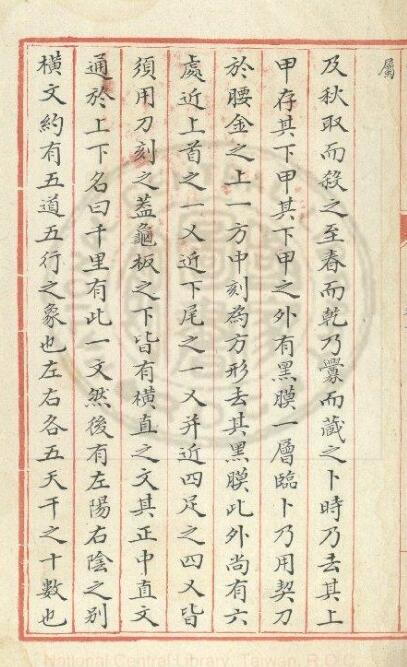 屬
及秋取而殺之至春而乾乃釁而藏之卜時乃去其上
甲存其下甲其下甲之外有黑膜一層臨卜乃用契刀
於腰金之上一方中刻為方形去其黑膜此外尚有六
處近上首之一乂近下尾之一乂并近四足之四乂皆
須用刀刻之葢龜板之下皆有橫直之文其正中直文
通於上下名曰千里有此一文然後有左陽右陰之别
橫文約有五道五行之象也左右各五天干之十數也
National Central Library, Taiwan, R.O.C.